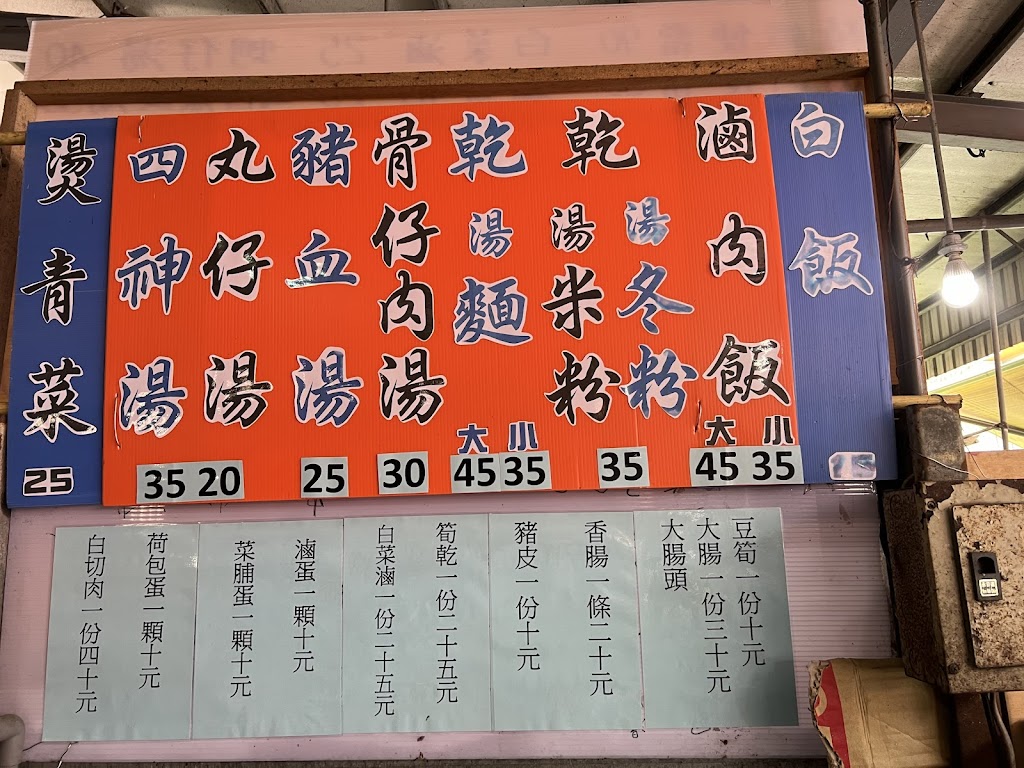 白飯
15
滷肉飯
大 小
45 35
湯冬粉
乾湯米粉
35
乾湯麵
大 小
45 35
骨仔肉湯
30
豬血湯
25
丸仔湯
20
四神湯
35
燙青菜
25
豆筍一份十元
大腸一份三十元
大腸頭
香腸一條二十元
豬皮一份十元
筍乾一份二十五元
白菜滷一份二十五元
滷蛋一顆十元
菜脯蛋一顆十元
荷包蛋一顆十元
白切肉一份四十元